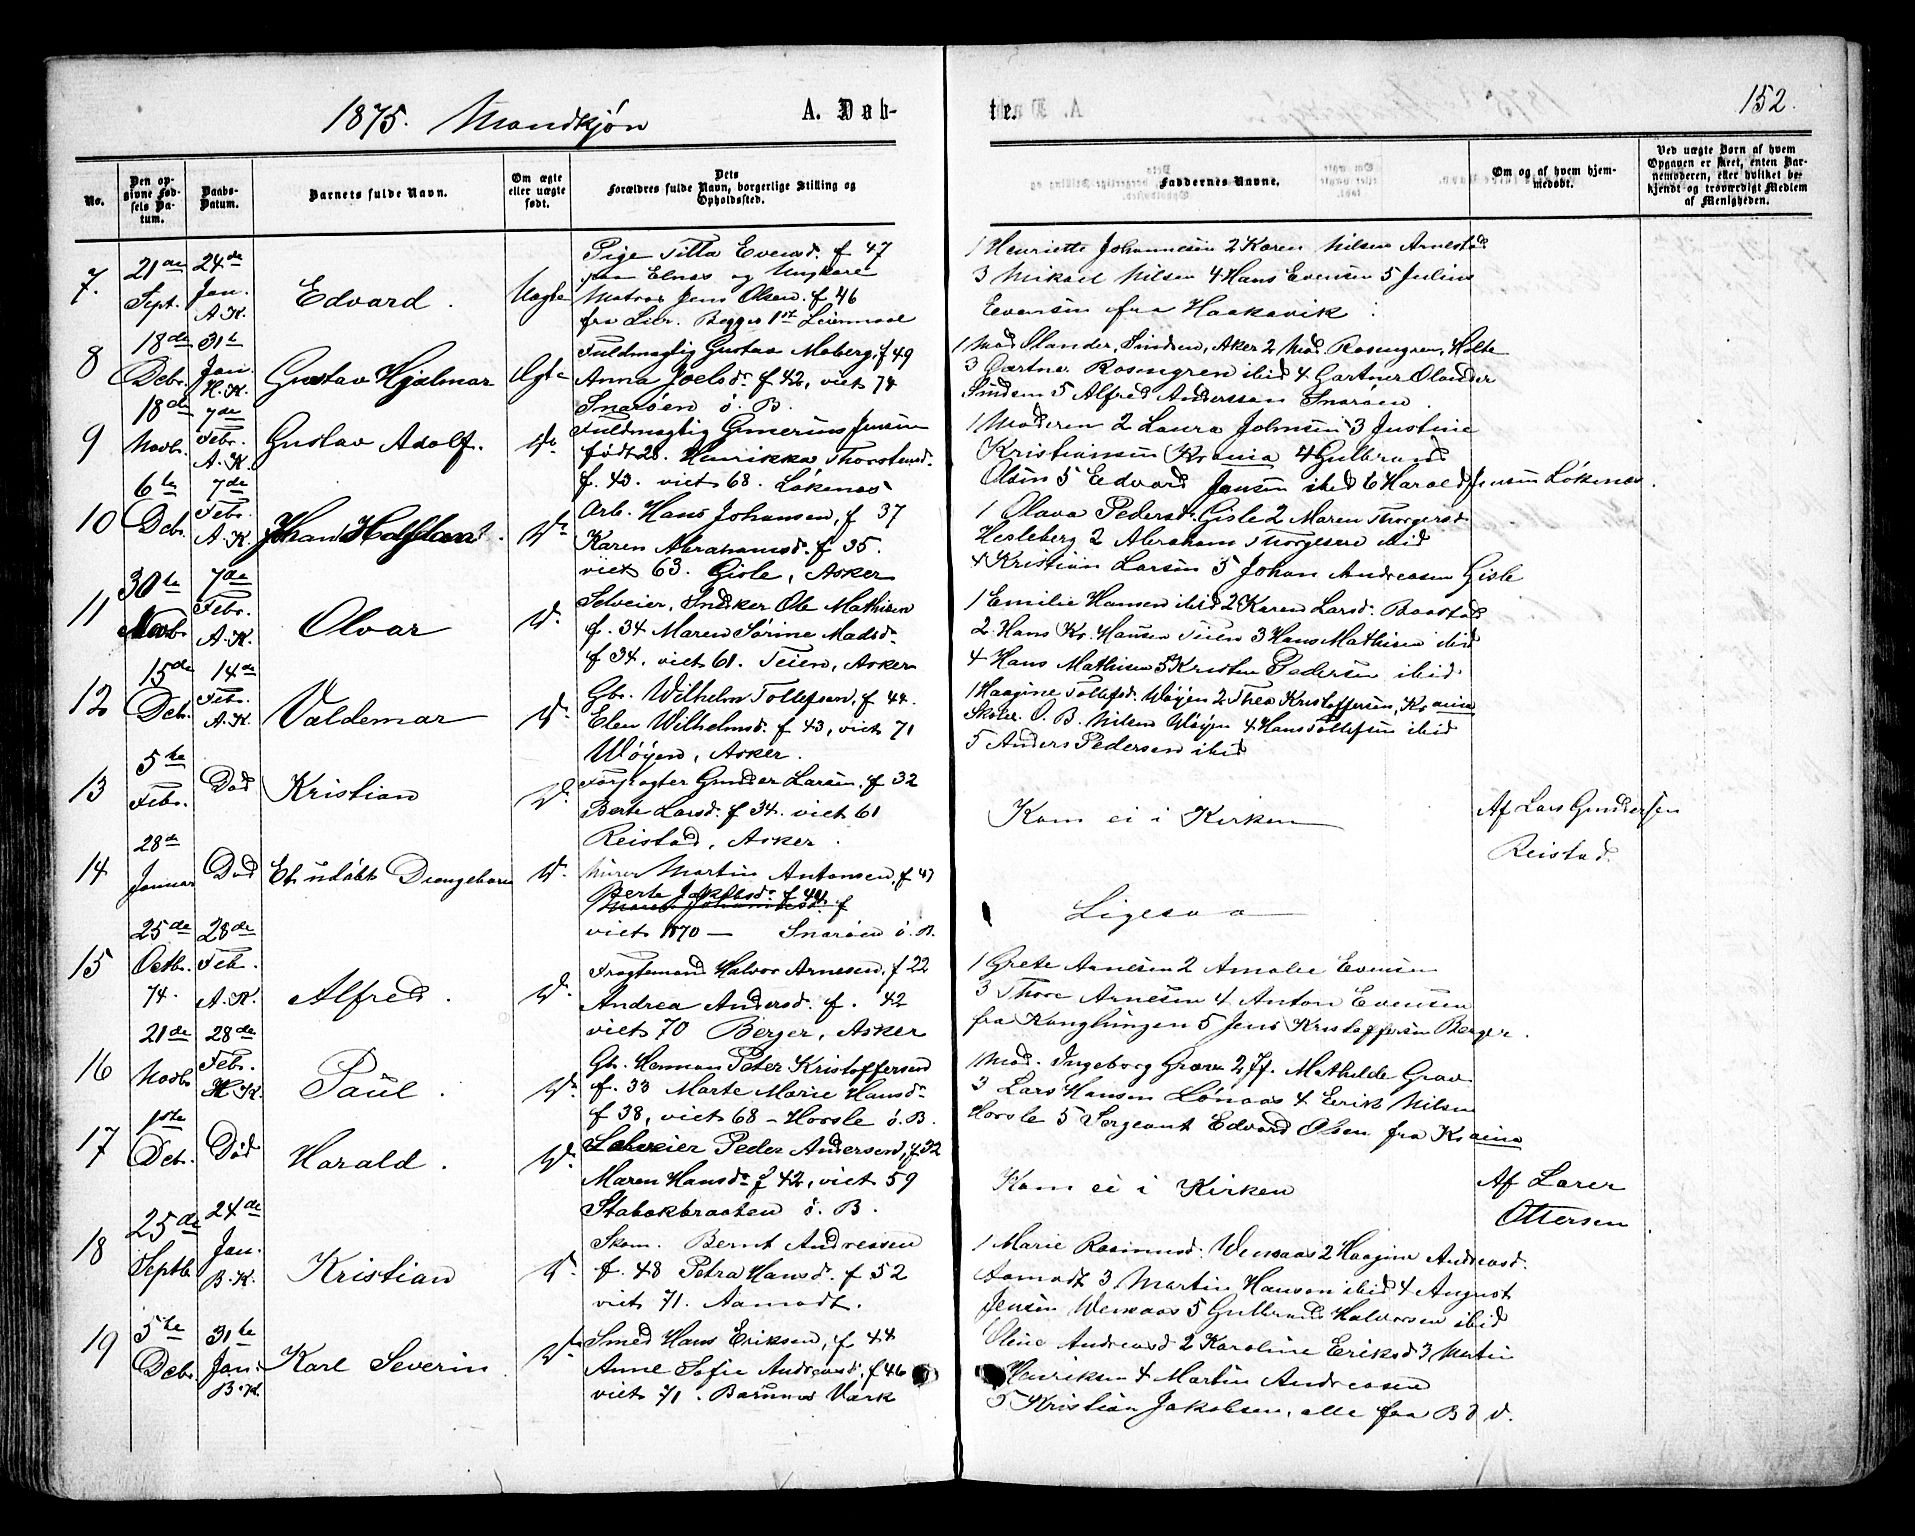 1875. Mandkjøn
A. Døb-
te.
152.
No.
Den op-
givne Fød-
sels Da-
tum.
Daabs-
Datum.
Barnets fulde Navn.
Om ægte
eller uægte
født.
Dets
Forældres fulde Navn, borgerlige Stilling og
Opholdssted.
Faddernes Navne.
Om og af hvem hjem-
medøbt.
Ved uægte Børn af hvem
Opgaven er skeet, enten Bar-
nemoderen, eller hvilket be-
kjendt og troværdigt Medlem
af Menigheden.
7.
21de
Sept.
24de
Jan.
A.K.
Edvard.
Uægte
Pige Titta Evensd. f 47
Elnes og Ungkarl
Matros Jens Olsen. f 46
fra Lier. Begges 1ste Leiermaal
1 Henriette Johannesen 2 Karen Nilsen Arnestad
3 Mikael Nilsen 4 Hans Evensen 5 Julius
Evensen fra Haakavik
8
18de
Decbr.
31te
Jan.
H.K.
Gustav Hjalmar
Ægte
Fuldmægtig Gustav Moberg, f 49
Anna Joelsdr. f 42, viet 74
Snarøen ø. B.
1 Mad. Olander, Sindsen, Aker 2 Mad. Rosengren, Holte
3 Gartner Rosengren ibid 4 Gartner Olander
Sindsen 5 Alfred Andersson Snarøen.
9
18de
Novbr.
7de
Febr.
A.K.
Gustav Adolf.
Do.
Fuldmægtig Gunerius Jensen
født 28. Henrikka Thorstensd.
f. 43. viet 68. Løkenes
1 Moderen 2 Laura Johnsen 3 Justine
Kristiansen Krania 4 Gulbrand
Olsen 5 Edvard Jensen ibid 6 Harald Jensen Løkenes.
10
6te
Decbr.
7de
Febr.
A.K.
Johan Halfdan.
Do.
Arb. Hans Johansen, f 37
Karen Abrahamsd. f 35.
viet 63. Gisle, Asker
1 Olava Pedersd. Gisle 2 Maren Thorgersd.
Hesleberg 2 Abraham Thorgersen ibid
4 Kristian Larsen 5 Johan Andreasen Gisle
11
30te
Novb.
7de
Febr.
A.K.
Olvar
Do.
Selveier, Snedker Ole Mathisen
f. 34 Maren Sørine Madsdr.
f 34. viet 61. Teien, Asker
1 Emilie Hansen ibid 2 Karen Larsd. Baastad
2 Hans Kr. Hansen Teien 3 Hans Mathisen ibid
4 Hans Mathisen 5 Kristen Pedersen ibid.
12
15de
Decbr.
14de
Febr.
A.K.
Valdemar
Do.
Gbr. Wilhelm Tollefsen, f 44.
Elen Wilhelmsd. f 43, viet 71
Wøyen, Asker.
1 Haagine Tollefsd. Wøyen 2 Thea Kristoffersen, Krania
Skoler. O. B. Nilsen Wøyen 4 Hans Tollefsen ibid
5 Anders Pedersen ibid
13
5te
Febr.
Død
Kristian
Do.
Forpagter Gunder Larsen, f 32
Berte Larsd. f 34. viet 61
Reistad, Asker.
Kom ei i Kirken
Af Lars Gundersen
Reistad.
14
28de
Januar
Død
Et udøbt Drengebarn
Do.
Murer Martin Antonsen, f 47
Berte Jakobsd. f 44
viet 1870 — Snarøen ø. B.
Ligesaa
15
25de
Octbr.
74.
28de
Feb.
A.K.
Alfred.
Do.
Fragtemand Halvor Arnesen, f 22
Andrea Andersd. f. 42
viet 70 Berger, Asker
1 Grete Arnesen 2 Amalie Evensen
3 Thore Arnesen 4 Anton Evensen
fra Konglungen 5 Jens Kristoffersen Berger.
16
21de
Novbr.
28de
Febr.
H.K.
Paul.
Do.
Gbr. Herman Peter Kristoffersen
f. 33 Marte Marie Hansdr.
f 38, viet 68 - Horsle ø. B.
1 Mad. Ingeborg Grav 2 Jf. Mathilde Grav
3 Lars Hansen Lønaas 4 Eerik Nilsen
Horsle 5 Sergeant Edvard Olsen fra Krania
17
1ste
Decb.
Død
Harald.
Do.
Selveier Peder Andersen, f 32
Maren Hansdr. f 42, viet 59
Stabækbraaten ø. B.
Kom ei i Kirken
Af Larer
Ottersen
18
25de
Septbr.
24de
Jan.
B.K.
Kristian
Do.
Skom. Bernt Andreasen
f. 48 Petra Hansd. f 52
viet 71. Aamodt.
1 Marie Rasmusd. Wensaas 2 Haagine Andreasd.
Aamodt 3 Martin Hansen ibid 4 August
Jensen Wensaas 5 Gulbrand Halvorsen ibid
19
5te
Decbr.
31te
Jan.
B.K.
Karl Severin
Do.
Smed Hans Eriksen, f 44
Anne Sofie Andreasd. f 46
viet 71. Bærums Værk
Oline Andreasd 2 Karoline Eriksd 3 Martin
Henriksen 4 Martin Andreasen
5 Kristian Jakobsen, alle fra B. V.